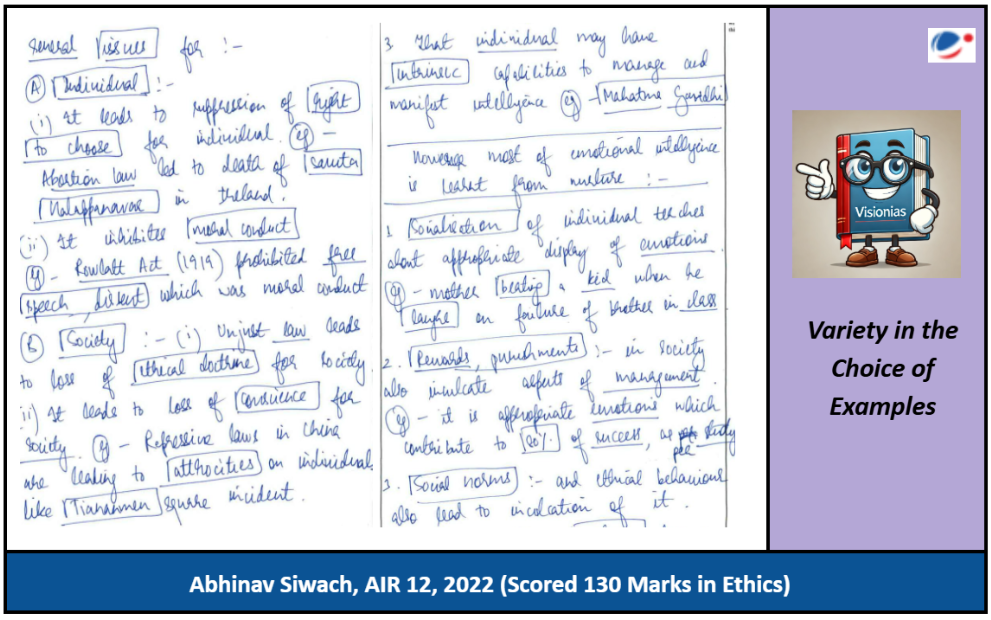 General issues for :-
(A) Individual :-
(i) It leads to suppression of right
to choose for individual. eg -
Abortion law led to death of Savita
Halappanavar in Ireland.
(ii) It inhibites moral conduct
eg - Rowlatt Act (1919) prohibited free
speech, dissent which was moral conduct
(B) Society :- (i) Unjust law leads
to loss of ethical doctrine for society
ii) It leads to loss of conscience for
society. eg - Repressive laws in China
are leading to atthocities on individual
like Tiananmen square incident.
3. That individual may have
intrinsic capabilities to manage and
manifest intelligence eg - Mahatma Gandhi
However most of emotional intelligence
is learnt from nurture :-
1. Socialisation of individual teaches
about appropriate display of emotions.
eg - mother beating a kid when he
laughs on failure of brother in class
2. Rewards, punishments :- in society
also inculcate aspects of management.
eg - it is appropriate emotions which
contribute to 80% of success, as per study
3. Social norms :- and ethical behaviour
also lead to inculcation of it.
Visionias
Variety in the
Choice of
Examples
Abhinav Siwach, AIR 12, 2022 (Scored 130 Marks in Ethics)